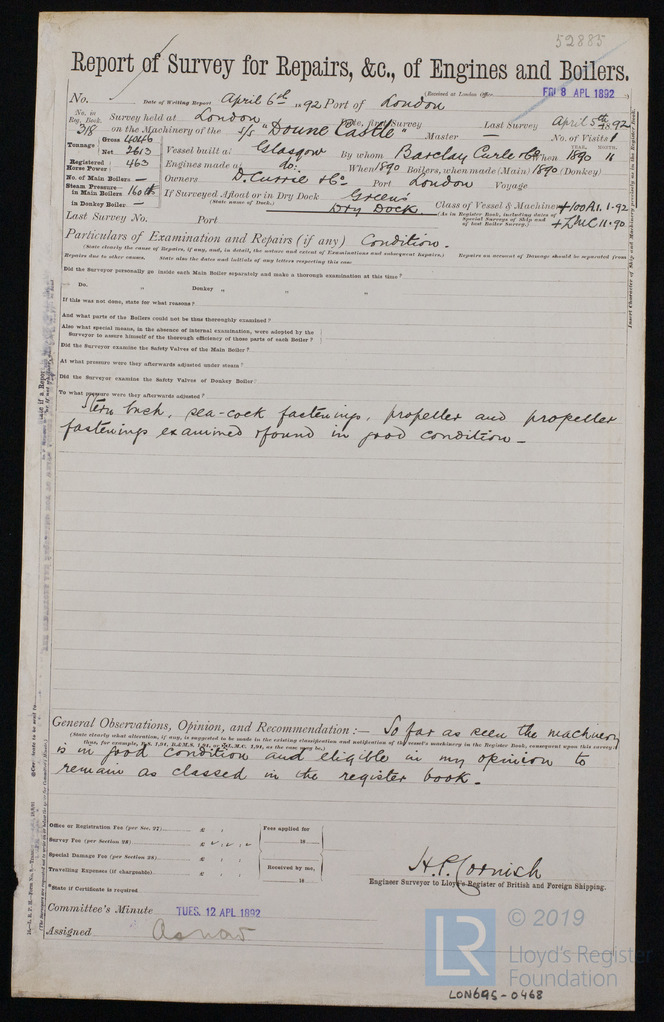 52885
Report of Survey for Repairs, &c., of Engines and Boilers.
(Received at London Office FRI 8 APL 1892
No. Date of Writing Report April 6th 1892 Port of London
No. in Reg. Book. 318 Survey held at London Date, first Survey Last Survey April 5th 1892
on the Machinery of the S/S "Doune Castle" Master — No. of Visits 1
Tonnage Gross 4046 Net 2613
Vessel built at Glasgow By whom Barclay Curle & Co When 1890 YEAR. MONTH. 11
Registered Horse Power 463 Engines made at do: When 1890 Boilers, when made (Main) 1890 (Donkey)
No. of Main Boilers — Owners D. Currie & Co Port London Voyage
Steam Pressure— in Main Boilers 160 lbs If Surveyed Afloat or in Dry Dock Green's
(State name of Dock.) Dry Dock Class of Vessel & Machinery +100A1. 1.92
in Donkey Boiler — (As in Register Book, including dates of Special Surveys of Ship and of last Boiler Survey.) + LMC 11.90
Last Survey No. Port
Particulars of Examination and Repairs (if any) Condition.
(State clearly the cause of Repairs, if any, and, in detail, the nature and extent of Examinations and subsequent Repairs.) Repairs on account of Damage should be separated from
Repairs due to other causes. State also the dates and initials of any letters respecting this case
Did the Surveyor personally go inside each Main Boiler separately and make a thorough examination at this time?
" Do. " Donkey " " "
If this was not done, state for what reasons?
And what parts of the Boilers could not be thus thoroughly examined?
Also what special means, in the absence of internal examination, were adopted by the
Surveyor to assure himself of the thorough efficiency of those parts of each Boiler?
Did the Surveyor examine the Safety Valves of the Main Boiler?
At what pressure were they afterwards adjusted under steam?
Did the Surveyor examine the Safety Valves of Donkey Boiler?
To what pressure were they afterwards adjusted?
Stern bush, sea-cock fastenings, propeller and propeller
fastenings examined & found in good condition —
General Observations, Opinion, and Recommendation :— So far as seen the machinery
(State clearly what alteration, if any, is suggested to be made in the existing classification and notification of the vessel's machinery in the Register Book, consequent upon this survey;
thus, for example, B.S. 1,91, B.&M.S. 1,91, or L.M.C. 1,91, as the case may be.)
is in good condition and eligible in my opinion to
remain as classed in the register book.
Office or Registration Fee (per Sec. 27) £ Fees applied for
Survey Fee (per Section 28) £ 18
Special Damage Fee (per Section 28) £ Received by me,
Travelling Expenses (if chargeable) £ 18
*State if Certificate is required
H.P. Cornish
Engineer Surveyor to Lloyd's Register of British and Foreign Shipping.
Committee's Minute TUES. 12 APL 1892
Assigned As now
LR © 2019
Lloyd's Register
Foundation
LON695-0468
Insert Character of Ship and Machinery precisely as in the Register Book.